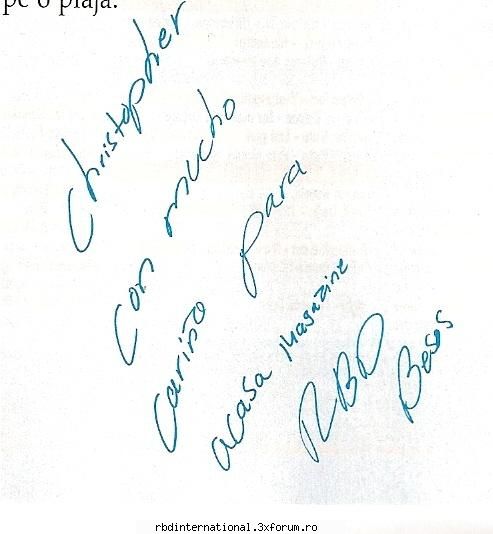 pe o plajă.
Christopher
Con mucho
Cariño para
acasa Magazine
RBD
Besos
rbdinternational.3xforum.ro